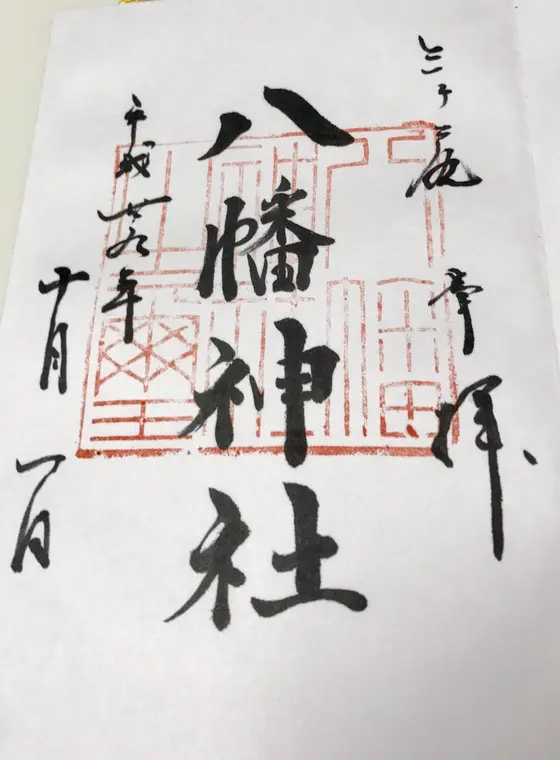 三ケ尻
奉拝
八幡神社
平成廿九年
十月一日